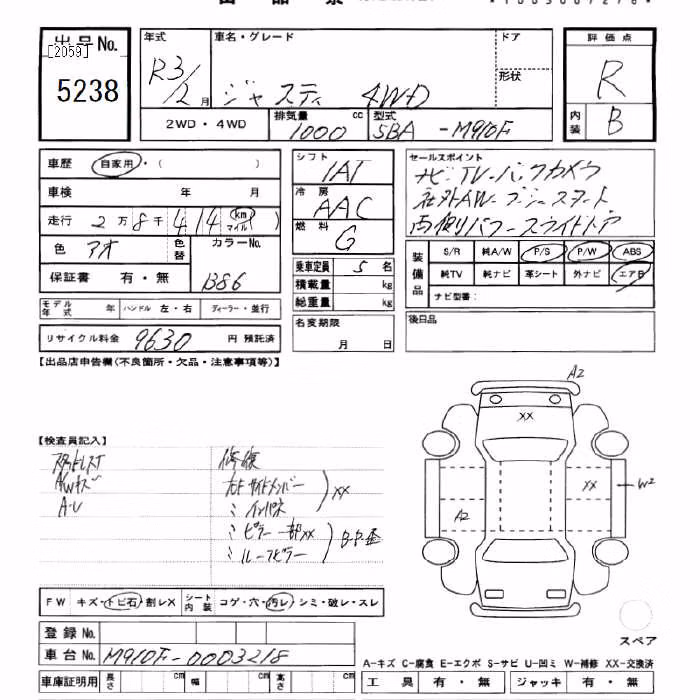 出品No.
[2059]
5238
年式
R3/2月
車名・グレード
ジャスティ 4WD
ドア
形状
2WD・4WD
排気量
1000 cc
型式
5BA-M910F
評価点
R
内装
B
車歴
自家用・( )
車検 年 月
走行 2万8千414 km マイル
色 アオ
色替
カラーNo.
B86
保証書 有・無
モデル年式 年
ハンドル 左・右
ディーラー・並行
リサイクル料金 9630 円 預託済
シフト
IAT
冷房
AAC
燃料
G
乗車定員 5 名
積載量 kg
総重量 kg
名変期限
月 日
セールスポイント
ナビ・TV-バックカメラ
社外AW-プッシュスタート
両側パワースライドドア
装備品
S/R 純A/W P/S P/W ABS
純TV 純ナビ 革シート 外ナビ エアB
ナビ型番:
後日品
【出品店申告欄(不良箇所・欠品・注意事項等)】
【検査員記入】
AWキズ
A・U
修復
右F サイドメンバー
〃 インパネ
XX
〃 ピラー一部XX
〃 ルーフピラー
A2
XX
XX
W2
A2
スペア
FW キズ・トビ石・割レX
シート内装 コゲ・穴・汚レ・シミ・破レ・スレ
登録No.
車台No. M910F-0003218
車庫証明用 長さ cm 幅 cm 高さ cm
A-キズ C-腐食 E-エクボ S-サビ U-凹ミ W-補修 XX-交換済
工具 有・無 ジャッキ 有・無